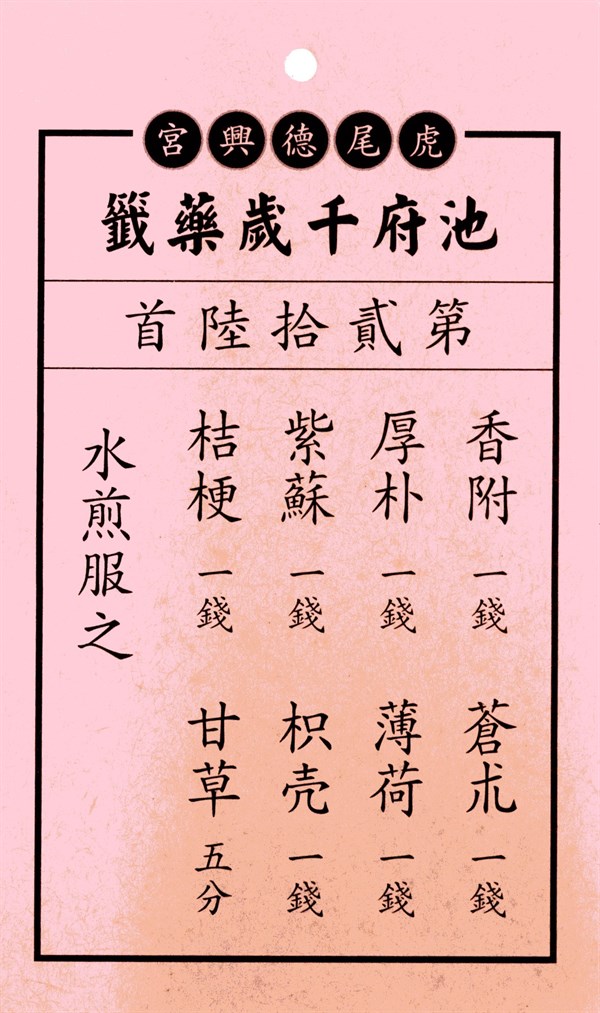 虎尾德興宮
池府千歲藥籤
第貳拾陸首
香附 一錢 蒼朮 一錢
厚朴 一錢 薄荷 一錢
紫蘇 一錢 枳壳 一錢
桔梗 一錢 甘草 五分
水煎服之